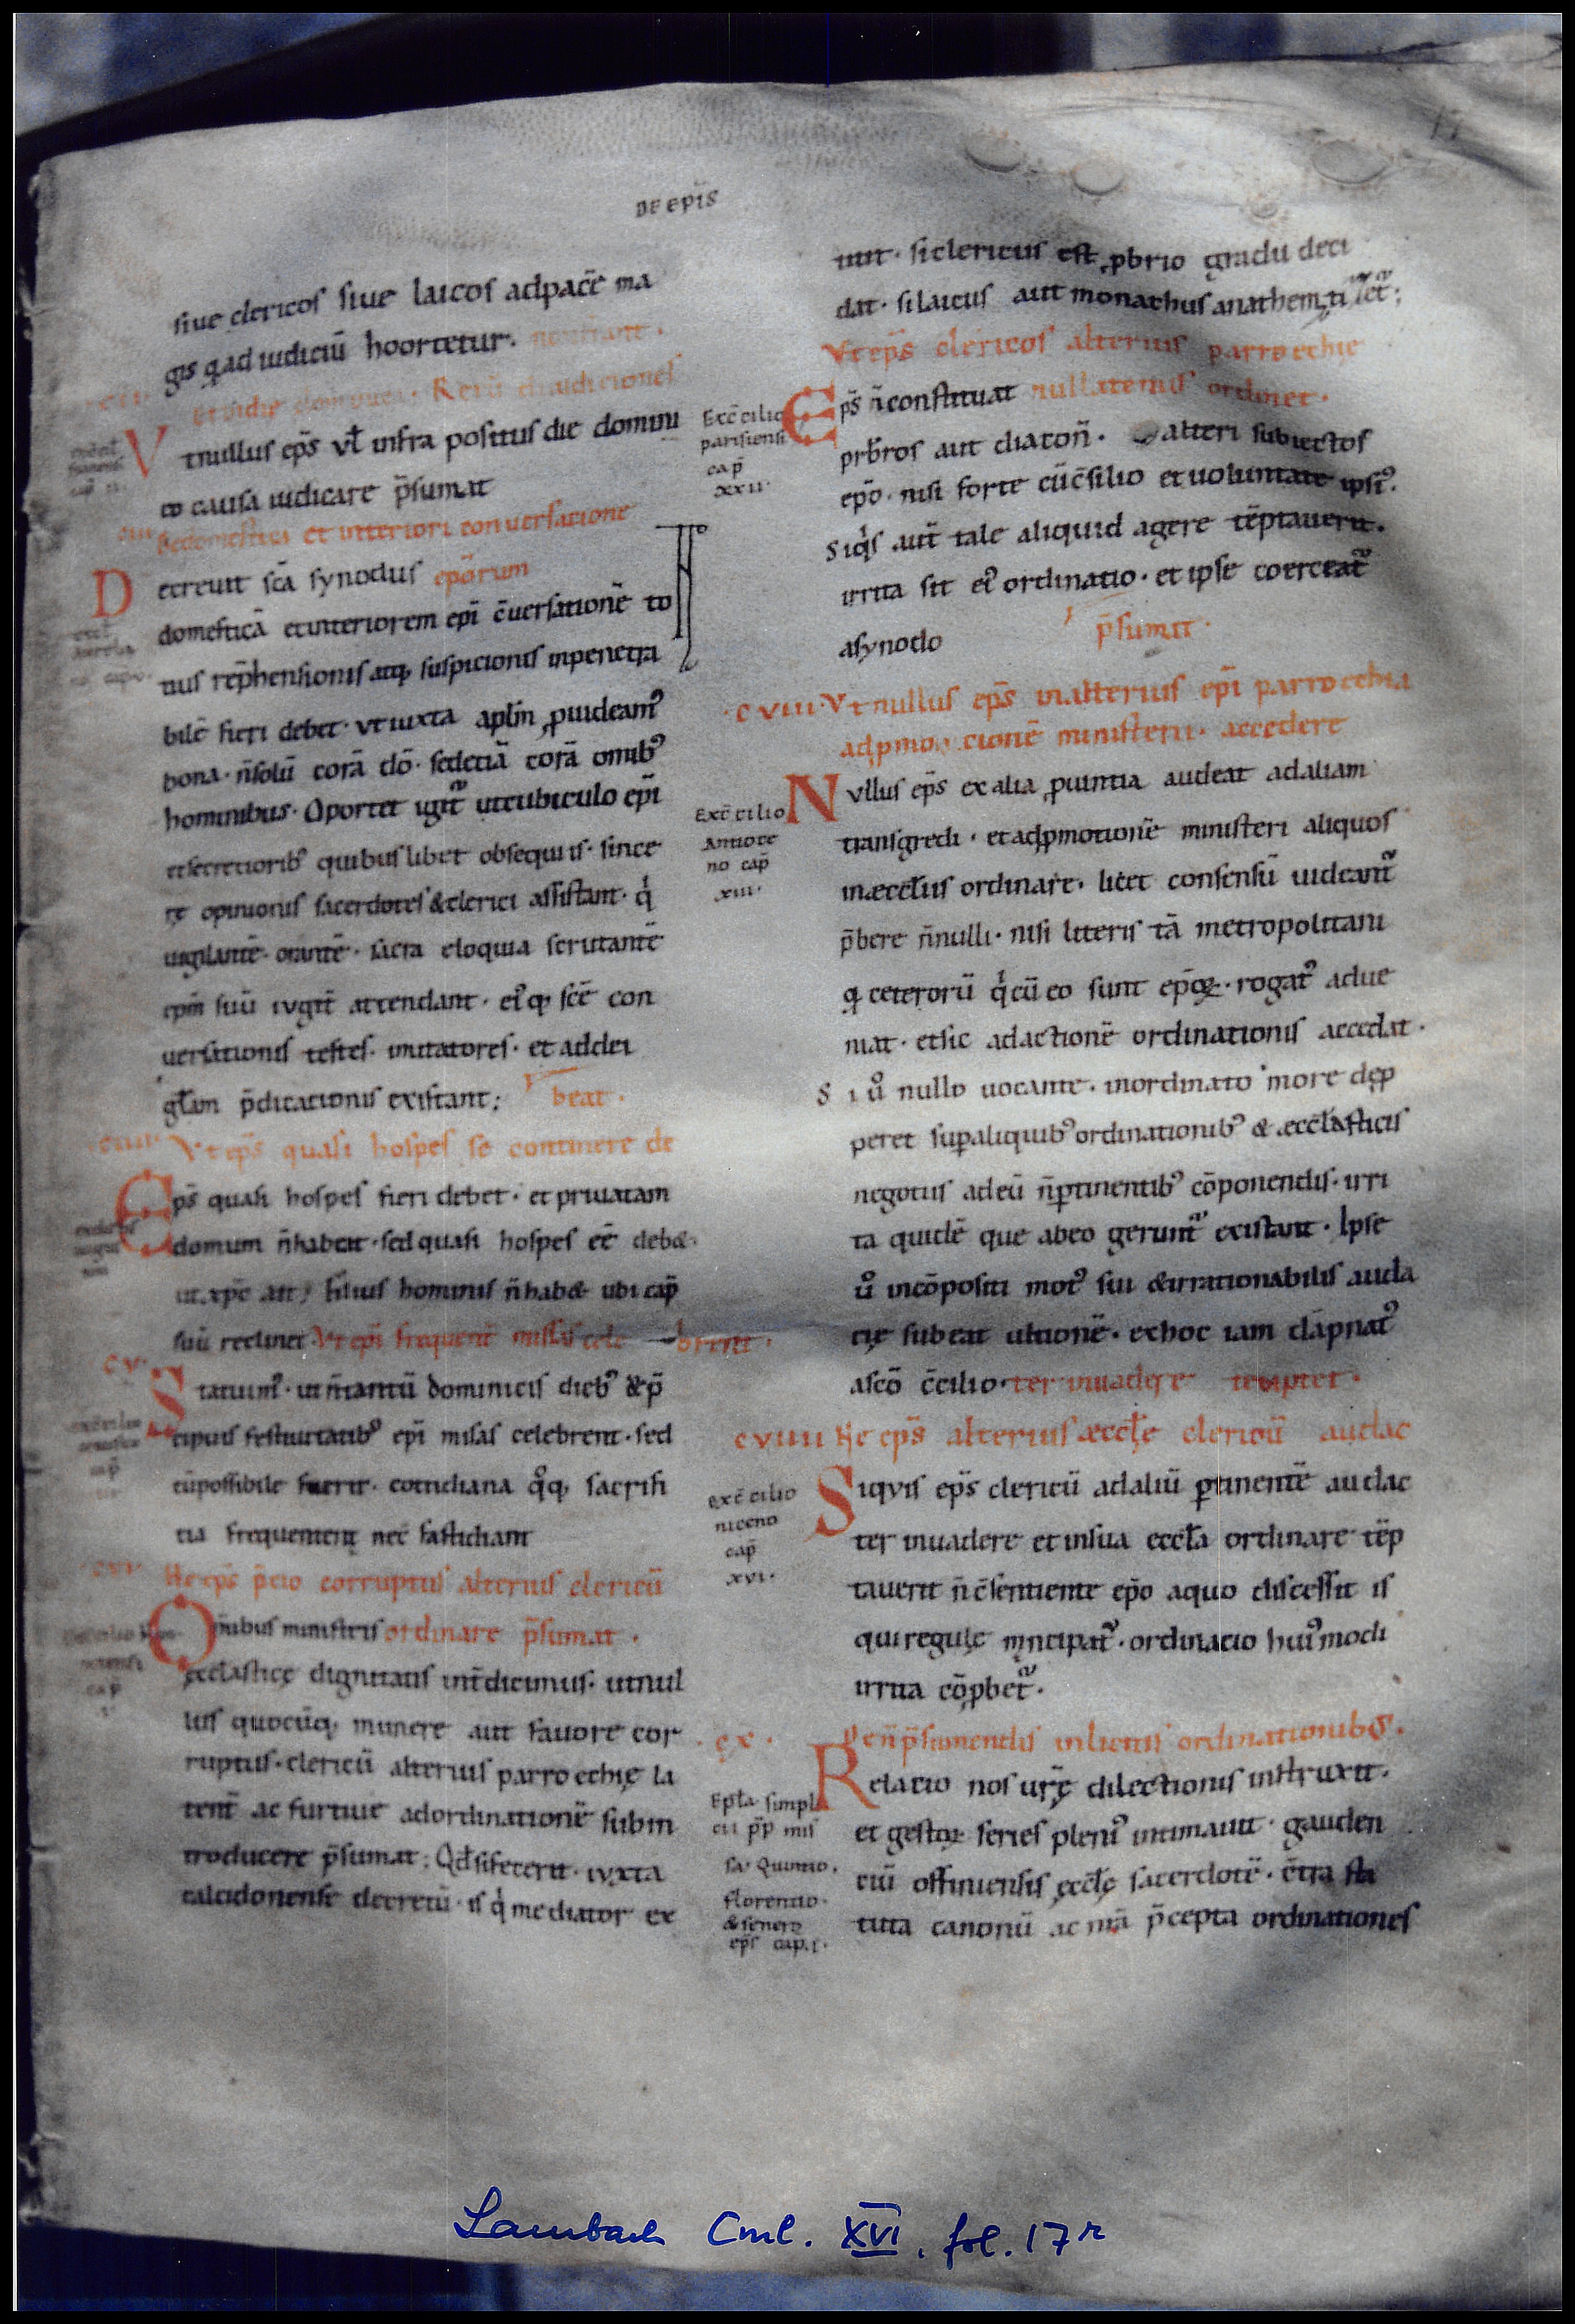 DE EPĪS
siue clericos siue laicos adpacē ma
gis q̄ ad iudiciū hoortetur.
V tnullus ep̄s vł infra positus die domini
co causa iudicare p̄sumat
et interiori conuersatione
D ecreuit scā synodus epōrum
domesticā etinteriorem epī c̄uersationē to
tius rep̄hensionis atq; suspicionis inpenetra
bilē fieri debet. vt iuxta apl̄m ꝓuideamꝰ
bona. n̄solū corā dō. sedetiā corā omībꝰ
hominibus. Oportet igit̃ utcubiculo epī
etsecretioribꝰ quibuslibet obsequiis. since
rę opinionis sacerdotes &clerici assistant. q̇
uigilantē. orantē. sacra eloquia scrutantē
epm̄ suū iugit̄ attendant. eiꝰq; scē con
uersationis testes. imitatores. et addei
gl̄am p̄dicationis existant; beat.
Vt ep̄s quasi hospes se continere de
E p̄s quasi hospes fieri debet. et priuatam
domum n̄habeat. sed quasi hospes eē deb&.
ut xp̄c ait, filius hominis n̄hab& ubi cap̄
suū reclinet. Vt epī frequent̄ missas cele brent.
CV.
S tatuimꝰ. ut n̄tantū dominicis diebꝰ &p̄
cipuis festiuitatibꝰ epī misas celebrent. sed
cūpossibile fuerit. cotidiana qͦq; sacrifi
tia frequentent nec fastidiant
Ne ep̄s p̄cio corruptus alterius clericū
O mnibus ministris ordinare p̄sumat.
ęcclastice dignitatis int̄dicimus. utnul
lus quocūq; munere aut fauore cor
ruptus. clericū alterius parroechię la
tent̄ ac furtiue adordinationē subin
troducere p̄sumat; Qd̄sifecerit. iuxta
calcidonense decretū. is q̇ mediator ex
titit. siclericus est ꝓbrio gradu deci
dat. silaicus aut monachus anathem
Vt ep̄s clericos alterius parroechie
Exc̄cilio
parisiensi
cap̄
xxii.
E p̄s n̄constituat nullatenus ordinet.
prb̄ros aut diacon̄. alteri subiectos
epō. nisi forte cūc̄silio etuoluntate ipsiꝰ.
Siq̇s aut̄ tale aliquid agere tēptauerit.
irrita sit eiꝰ ordinatio. et ipse coerceat̃
asynodo p̄sumat.
CVIII. Vt nullus ep̄s inalterius epī parroechia
adꝓmotionē ministerii. accedere
Exc̄cilio
Antioce
no cap̄
xiii.
N vllus ep̄s ex alia ꝓuintia audeat adaliam
transgredi. etadꝓmotionē ministeri aliquos
inæccl̄iis ordinare. licet consensū uideant̃
p̄bere n̄nulli. nisi literis tā metropolitani
q̄ ceterorū q̇cū eo sunt epōꝝ. rogatꝰ adue
niat. etsic adactionē ordinationis accedat.
S i uͦ nullo uocante. inordinato more dep
peret suꝑaliquibꝰ ordinationibꝰ & æccl̄iasticis
negotiis adeū n̄ꝑtinentibꝰ cōponendis. irri
ta quidē que abeo gerunt̃ existant. Ipse
uͦ incōpositi motꝰ sui &irrationabilis auda
cię subeat ultionē. exhoc iam dāpnatꝰ
ascō c̄cilio. ter inuadere temptet.
CVIIII Ne ep̄s alterius æccl̄e clericū audac
Exc̄cilio
niceno
cap̄
xvi.
S iquis ep̄s clericū adaliū ꝑtinentē audac
ter inuadere etinsua eccl̄a ordinare tēp
tauerit n̄c̄sentiente epō aquo discessit is
quiregulę mncipat̃. ordinacio huiꝰmodi
irrita cōꝓbet̃.
CX. De n̄p̄sumendis inlicitis ordinationibꝰ.
Epl̄a simpli
cii p̄p mis
sa Quinto.
florentio.
&seuero
ep̄s cap. i.
R elatio nos ur̄ę dilectionis instruxit.
et gestoꝝ series pleniꝰ intimauit. gauden
ciū offiniensis ęccl̄ę sacerdotē. c̄tra sta
tuta canonū ac nr̄ā p̄cepta ordinationes
Lambach Cml. XVI, fol. 17r